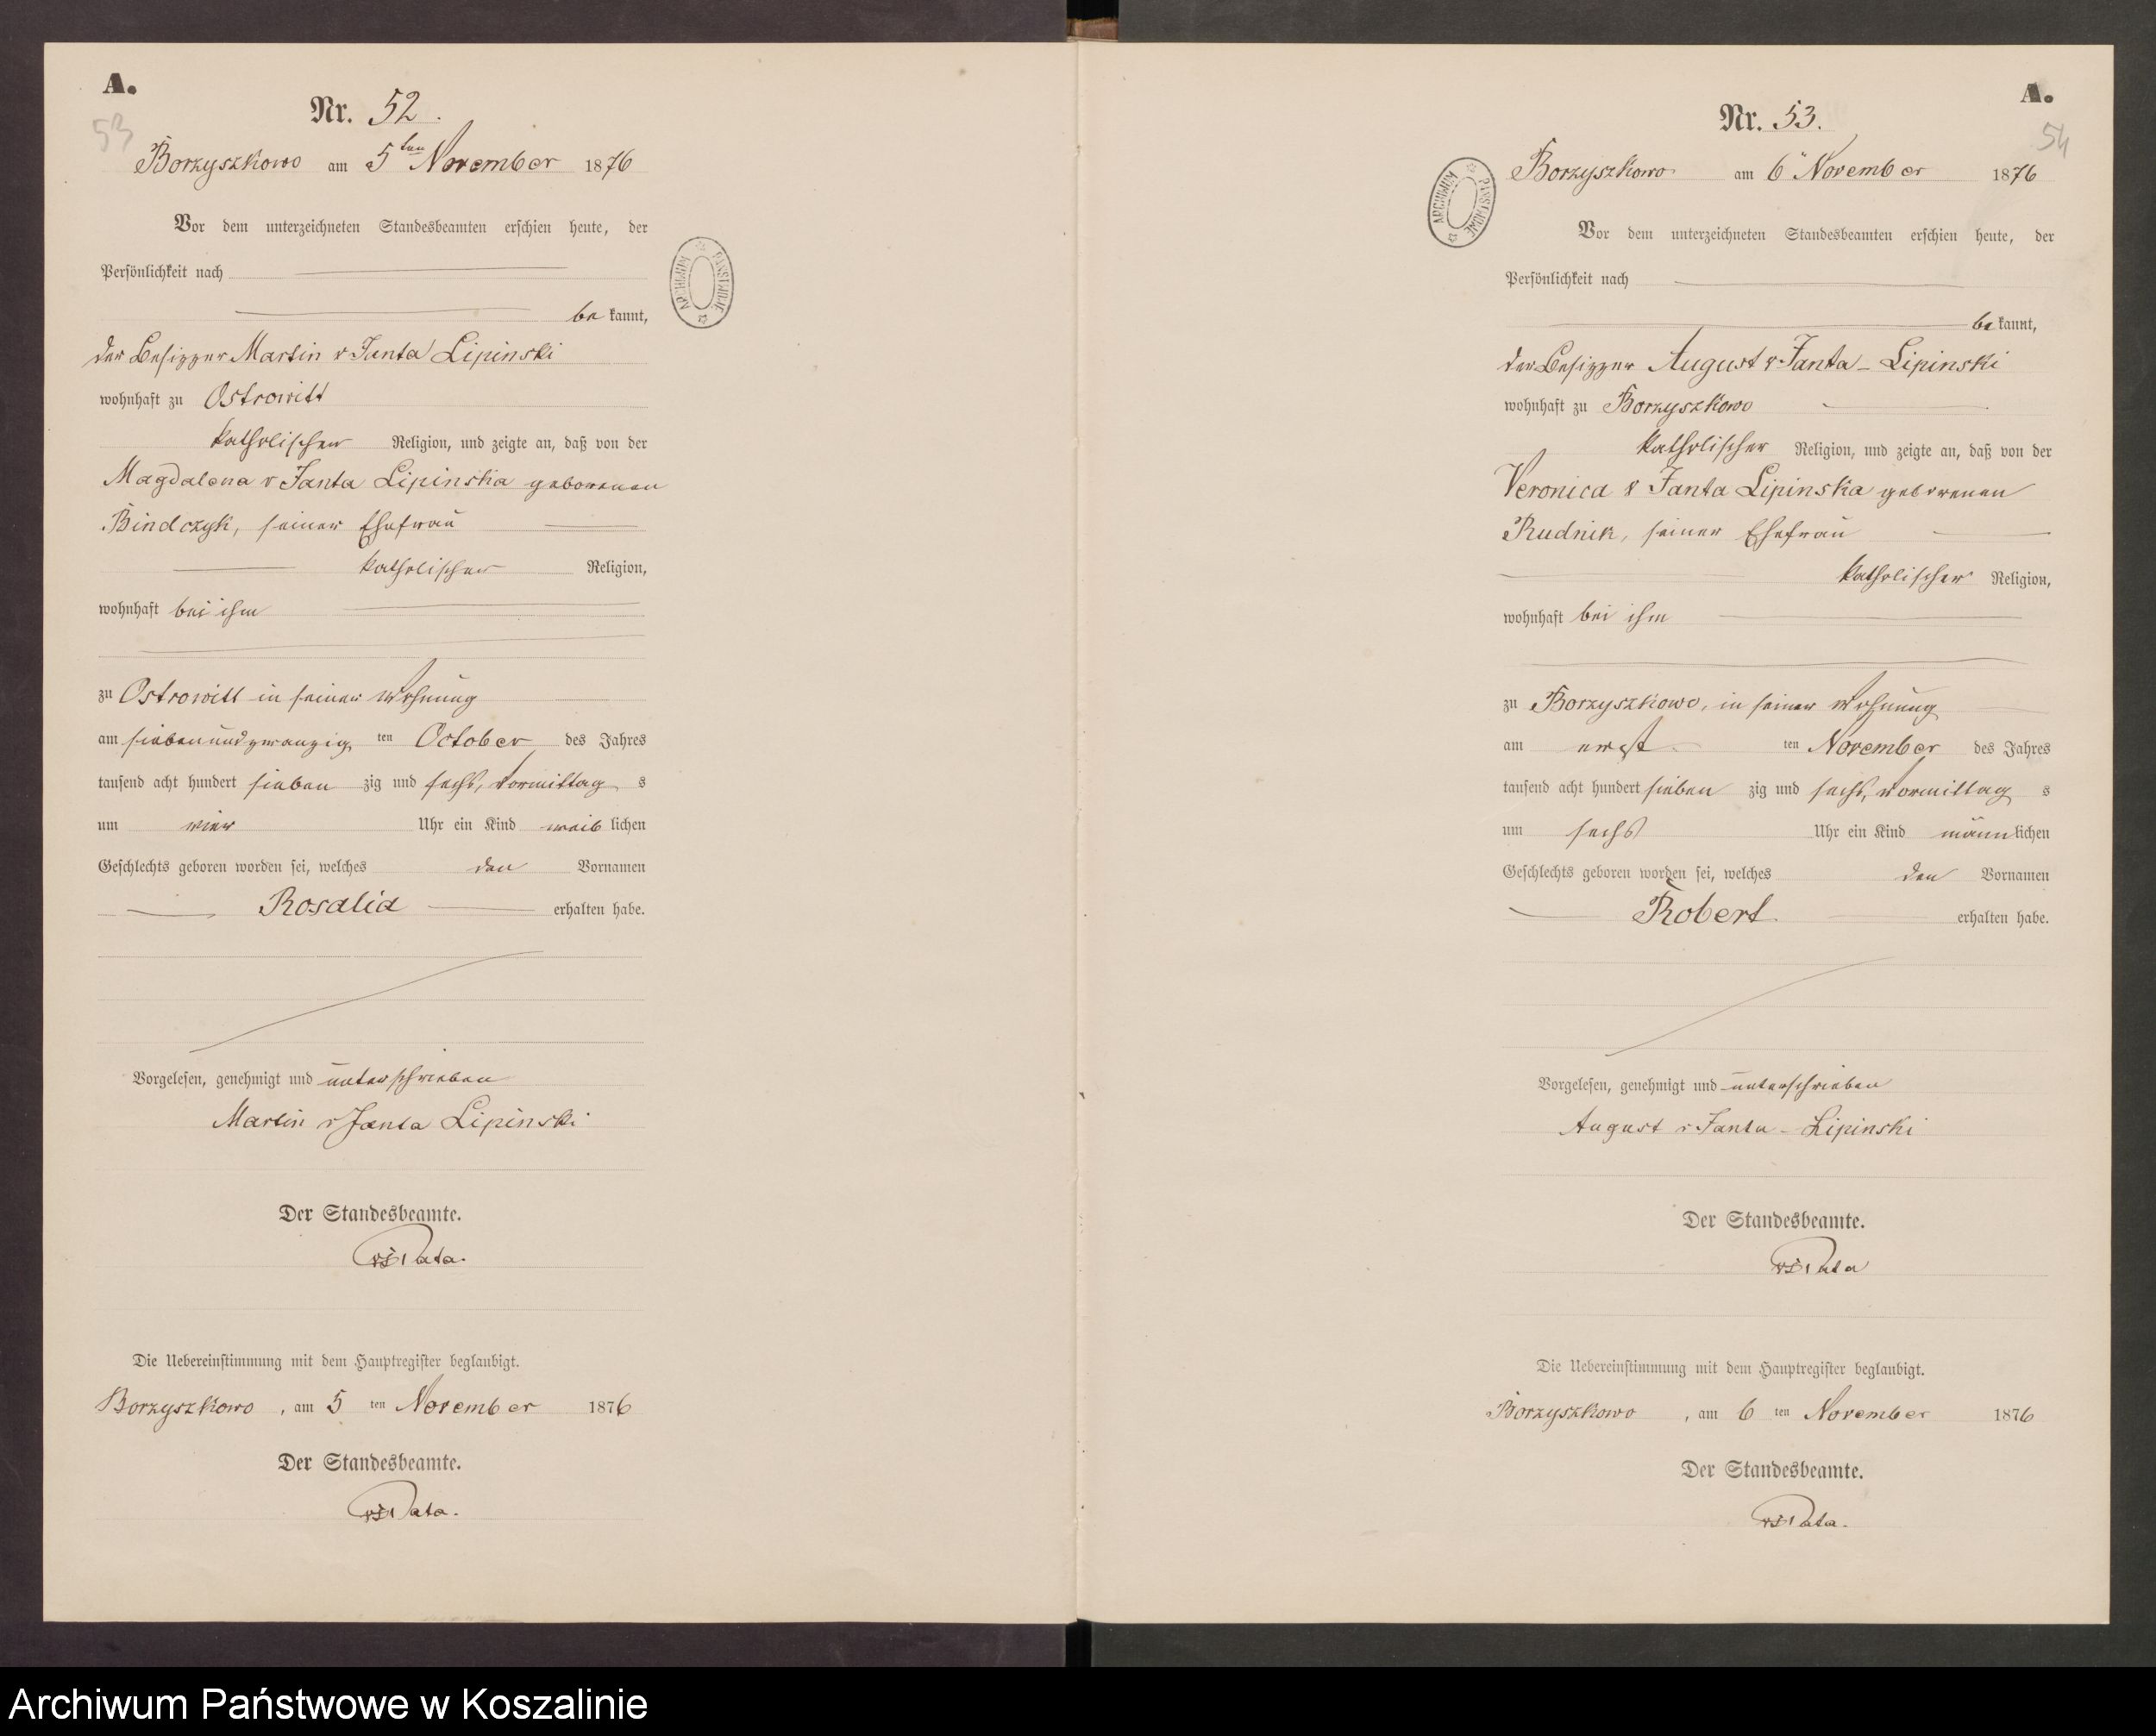 A.
53
Nr. 52.
Borzyszkowo am 5ten November 1876
Vor dem unterzeichneten Standesbeamten erschien heute, der
Persönlichkeit nach
be kannt,
der Besitzer Martin v Janta Lipinski
wohnhaft zu Ostrowitt
katholischer Religion, und zeigte an, daß von der
Magdalena v Janta Lipinska geborenen
Bindczyk, seiner Ehefrau
katholischer Religion,
wohnhaft bei ihm
zu Ostrowitt in seiner Wohnung
am siebenundzwanzig ten October des Jahres
tausend acht hundert sieben zig und sechs, Vormittag s
um vier Uhr ein Kind weib lichen
Geschlechts geboren worden sei, welches den Vornamen
Rosalia erhalten habe.
Vorgelesen, genehmigt und unterschrieben
Martin v Janta Lipinski
Der Standesbeamte.
Die Uebereinstimmung mit dem Hauptregister beglaubigt.
Borzyszkowo, am 5 ten November 1876
Der Standesbeamte.
ARCHIWUM PAŃSTWOWE
A.
54
Nr. 53.
Borzyszkowo am 6 November 1876
Vor dem unterzeichneten Standesbeamten erschien heute, der
Persönlichkeit nach
be kannt,
der Besitzer August v Janta - Lipinski
wohnhaft zu Borzyszkowo
katholischer Religion, und zeigte an, daß von der
Veronica v Janta Lipinska geborenen
Rudnik, seiner Ehefrau
katholischer Religion,
wohnhaft bei ihm
zu Borzyszkowo, in seiner Wohnung
am erst ten November des Jahres
tausend acht hundert sieben zig und sechs, Vormittag s
um sechs Uhr ein Kind männ lichen
Geschlechts geboren worden sei, welches den Vornamen
Robert erhalten habe.
Vorgelesen, genehmigt und unterschrieben
August v Janta - Lipinski
Der Standesbeamte.
Die Uebereinstimmung mit dem Hauptregister beglaubigt.
Borzyszkowo, am 6 ten November 1876
Der Standesbeamte.
ARCHIWUM PAŃSTWOWE
Archiwum Państwowe w Koszalinie